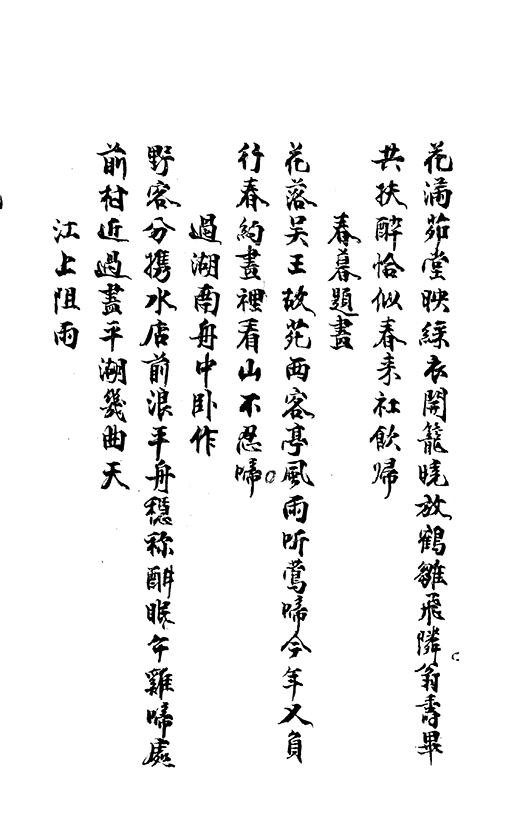 花滿茆堂映綵衣開籠曉放鶴雛飛隣翁壽畢
共扶醉恰似春来社飲歸
春暮題畫
花落吴王故苑西客亭風雨听鶯啼今年又負
行春約畫裡看山不忍啼
過湖南舟中卧作
野客分携水店前浪平舟穩称酣眠午雞啼處
前村近過盡平湖幾曲天
江上阻雨